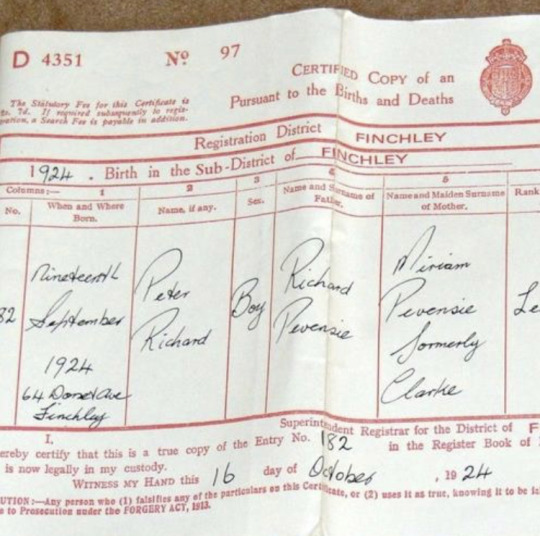 D 4351 Nº 97
CERTIFIED COPY of an
The Statutory Fee for this Certificate is
7d. If required subsequently to
a Search Fee is payable in addition.
Pursuant to the Births and Deaths
Registration District FINCHLEY
1924. Birth in the Sub-District of FINCHLEY
Columns:— 1 2 3 4 5
No. When and Where Born. Name, if any. Sex. Name and Surname of Father. Name and Maiden Surname of Mother. Rank
Nineteenth
September
1924
Finchley
Peter
Richard
Boy
Richard
Pevensie
Miriam
Pevensie
formerly
Clarke
Superintendent Registrar for the District of F
I,
hereby certify that this is a true copy of the Entry No. 182 in the Register Book of
is now legally in my custody.
WITNESS MY HAND this 16 day of October, 1924
CAUTION:—Any person who (1) falsifies any of the particulars on this Certificate, or (2) uses it as true, knowing it to be
to Prosecution under the FORGERY ACT, 1913.